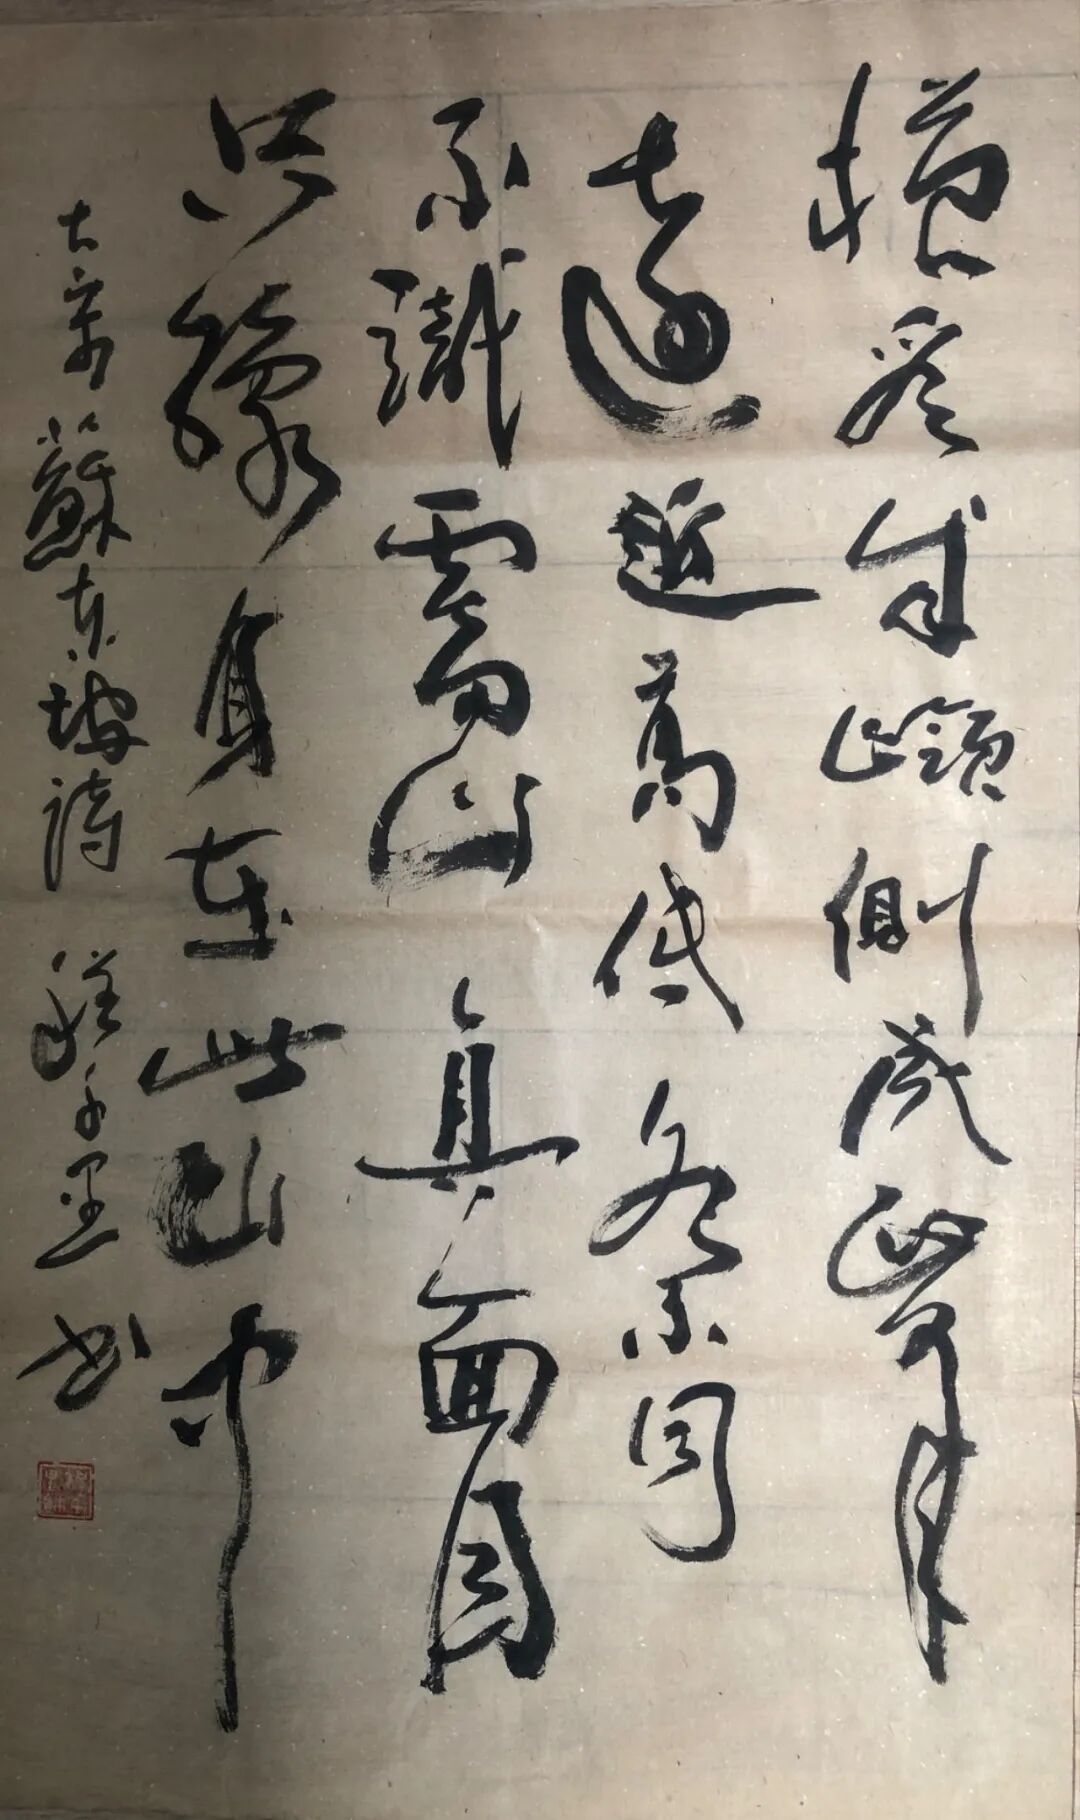 橫看成嶺側成峯
遠近高低各不同
不識廬山真面目
只緣身在此山中
大宋蘇東坡詩 書